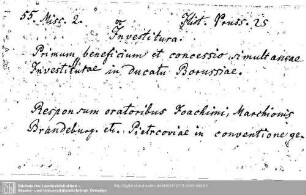 55. Misc. 2. Hist. Pruss. 25
Investitura.
Primum beneficium et concessio simultaneae
Investiturae in ducatu Borussiae.
Responsum oratoribus Joachimi, Marchionis
Brandeburg. etc. Pietrcoviae in conventione ge-